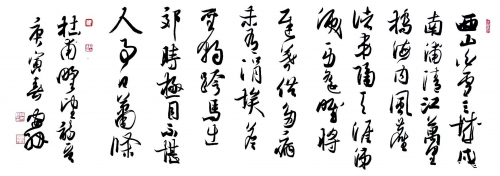 西山白雪三城戍
南浦清江萬里
橋海内風塵
諸弟隔天涯涕
淚一身遥惟將
遲暮供多病
未有涓埃答
聖朝跨馬出
郊時極目不堪
人事日蕭條
杜甫野望
庚寅春